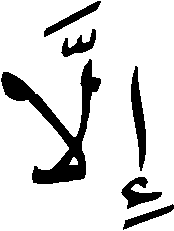 إِلَّا